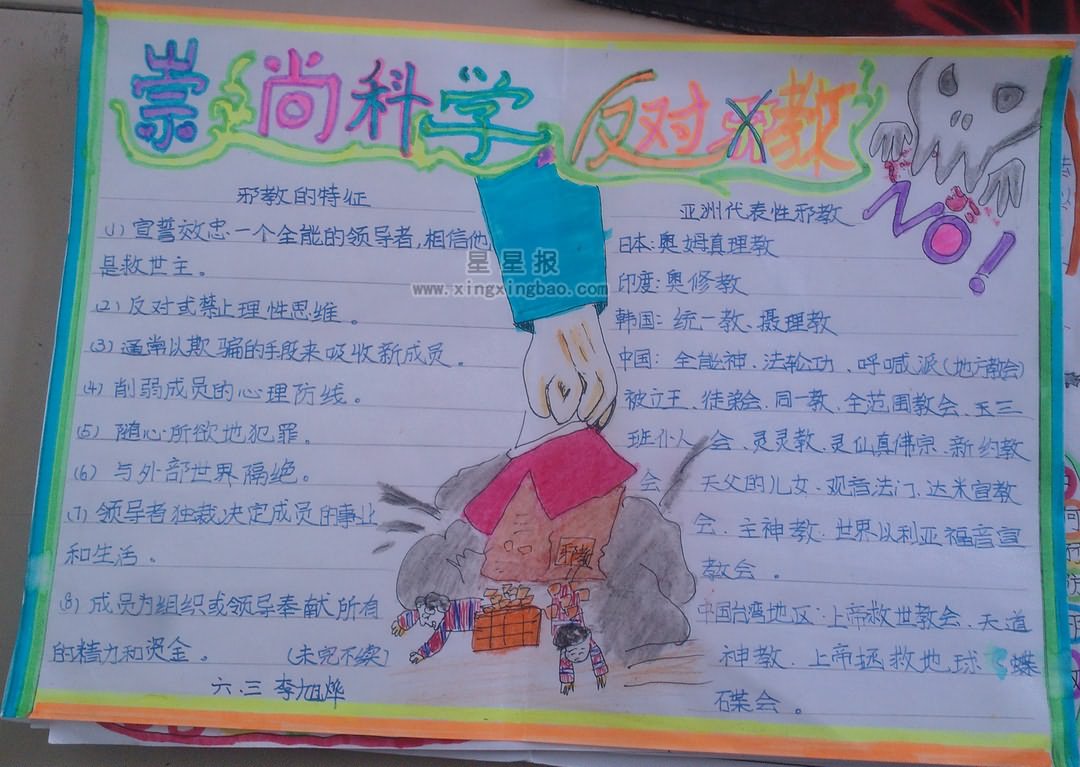 崇尚科学 反对邪教
NO!
邪教的特征
(1) 宣誓效忠一个全能的领导者,相信他
是救世主。
(2) 反对或禁止理性思维。
(3) 通常以欺骗的手段来吸收新成员。
(4) 削弱成员的心理防线。
(5) 随心所欲地犯罪。
(6) 与外部世界隔绝。
(7) 领导者独裁决定成员的事业
和生活。
(8) 成员为组织或领导奉献所有
的精力和资金。 (未完不续)
六.三 李旭烨
星星报
www.xingxingbao.com
邪教
亚洲代表性邪教
日本:奥姆真理教
印度:奥修教
韩国:统一教、摄理教
中国:全能神、法轮功、呼喊派(地方教会)
被立王、徒弟会、同一教、全范围教会、三
班仆人 会、灵灵教、灵仙真佛宗、新约教
会、天父的儿女、观音法门、达米宣教
会、主神教、世界以利亚福音宣
教会。
中国台湾地区:上帝救世教会、天道
神教、上帝拯救地球 碟会。